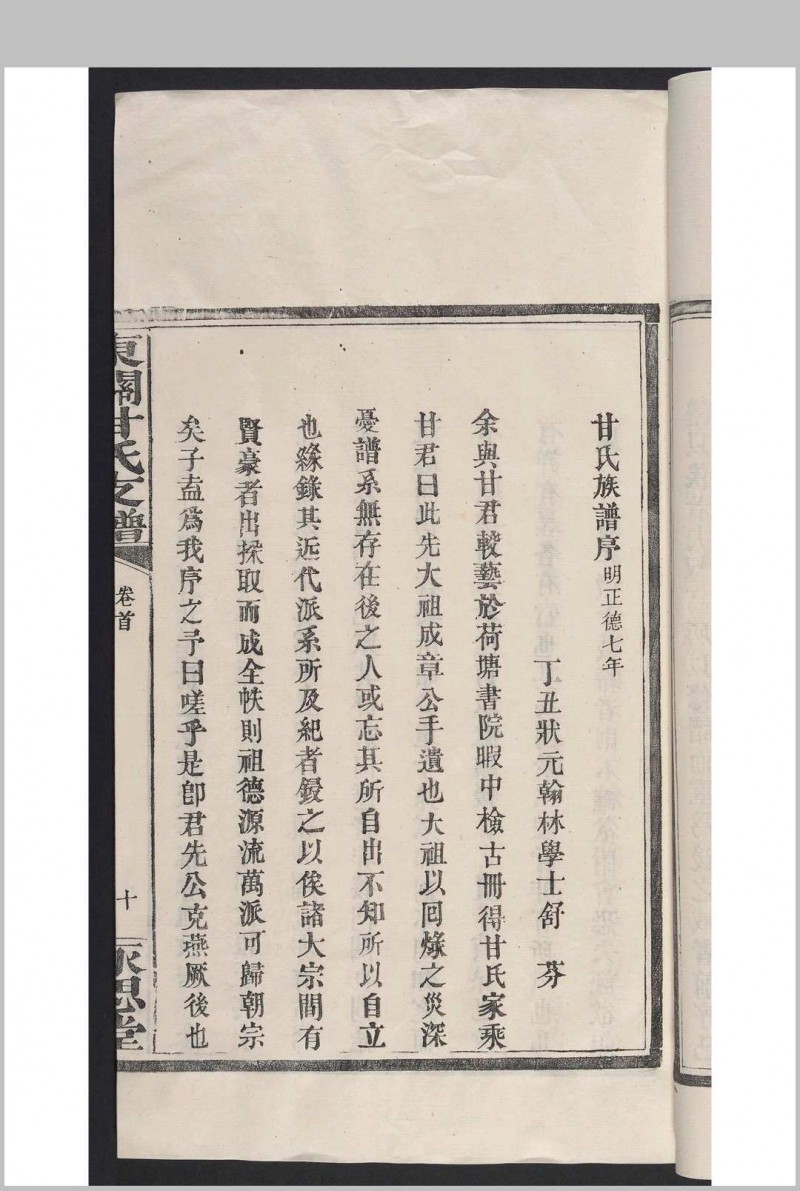 甘氏族譜序 明正德七年
丁丑狀元翰林學士舒 芬
余與甘君較藝於荷塘書院暇中檢古冊得甘氏家乘
甘君曰此先大祖成章公手遺也大祖以回祿之災深
憂譜系無存在後之人或忘其所自出不知所以自立
也緣錄其近代派系所及紀者鋟之以俟諸大宗間有
賢豪者出採取而成全帙則祖德源流萬派可歸朝宗
矣子盍為我序之予曰嗟乎是即君先公克燕厥後也
東關甘氏支譜 卷首 十 永思堂